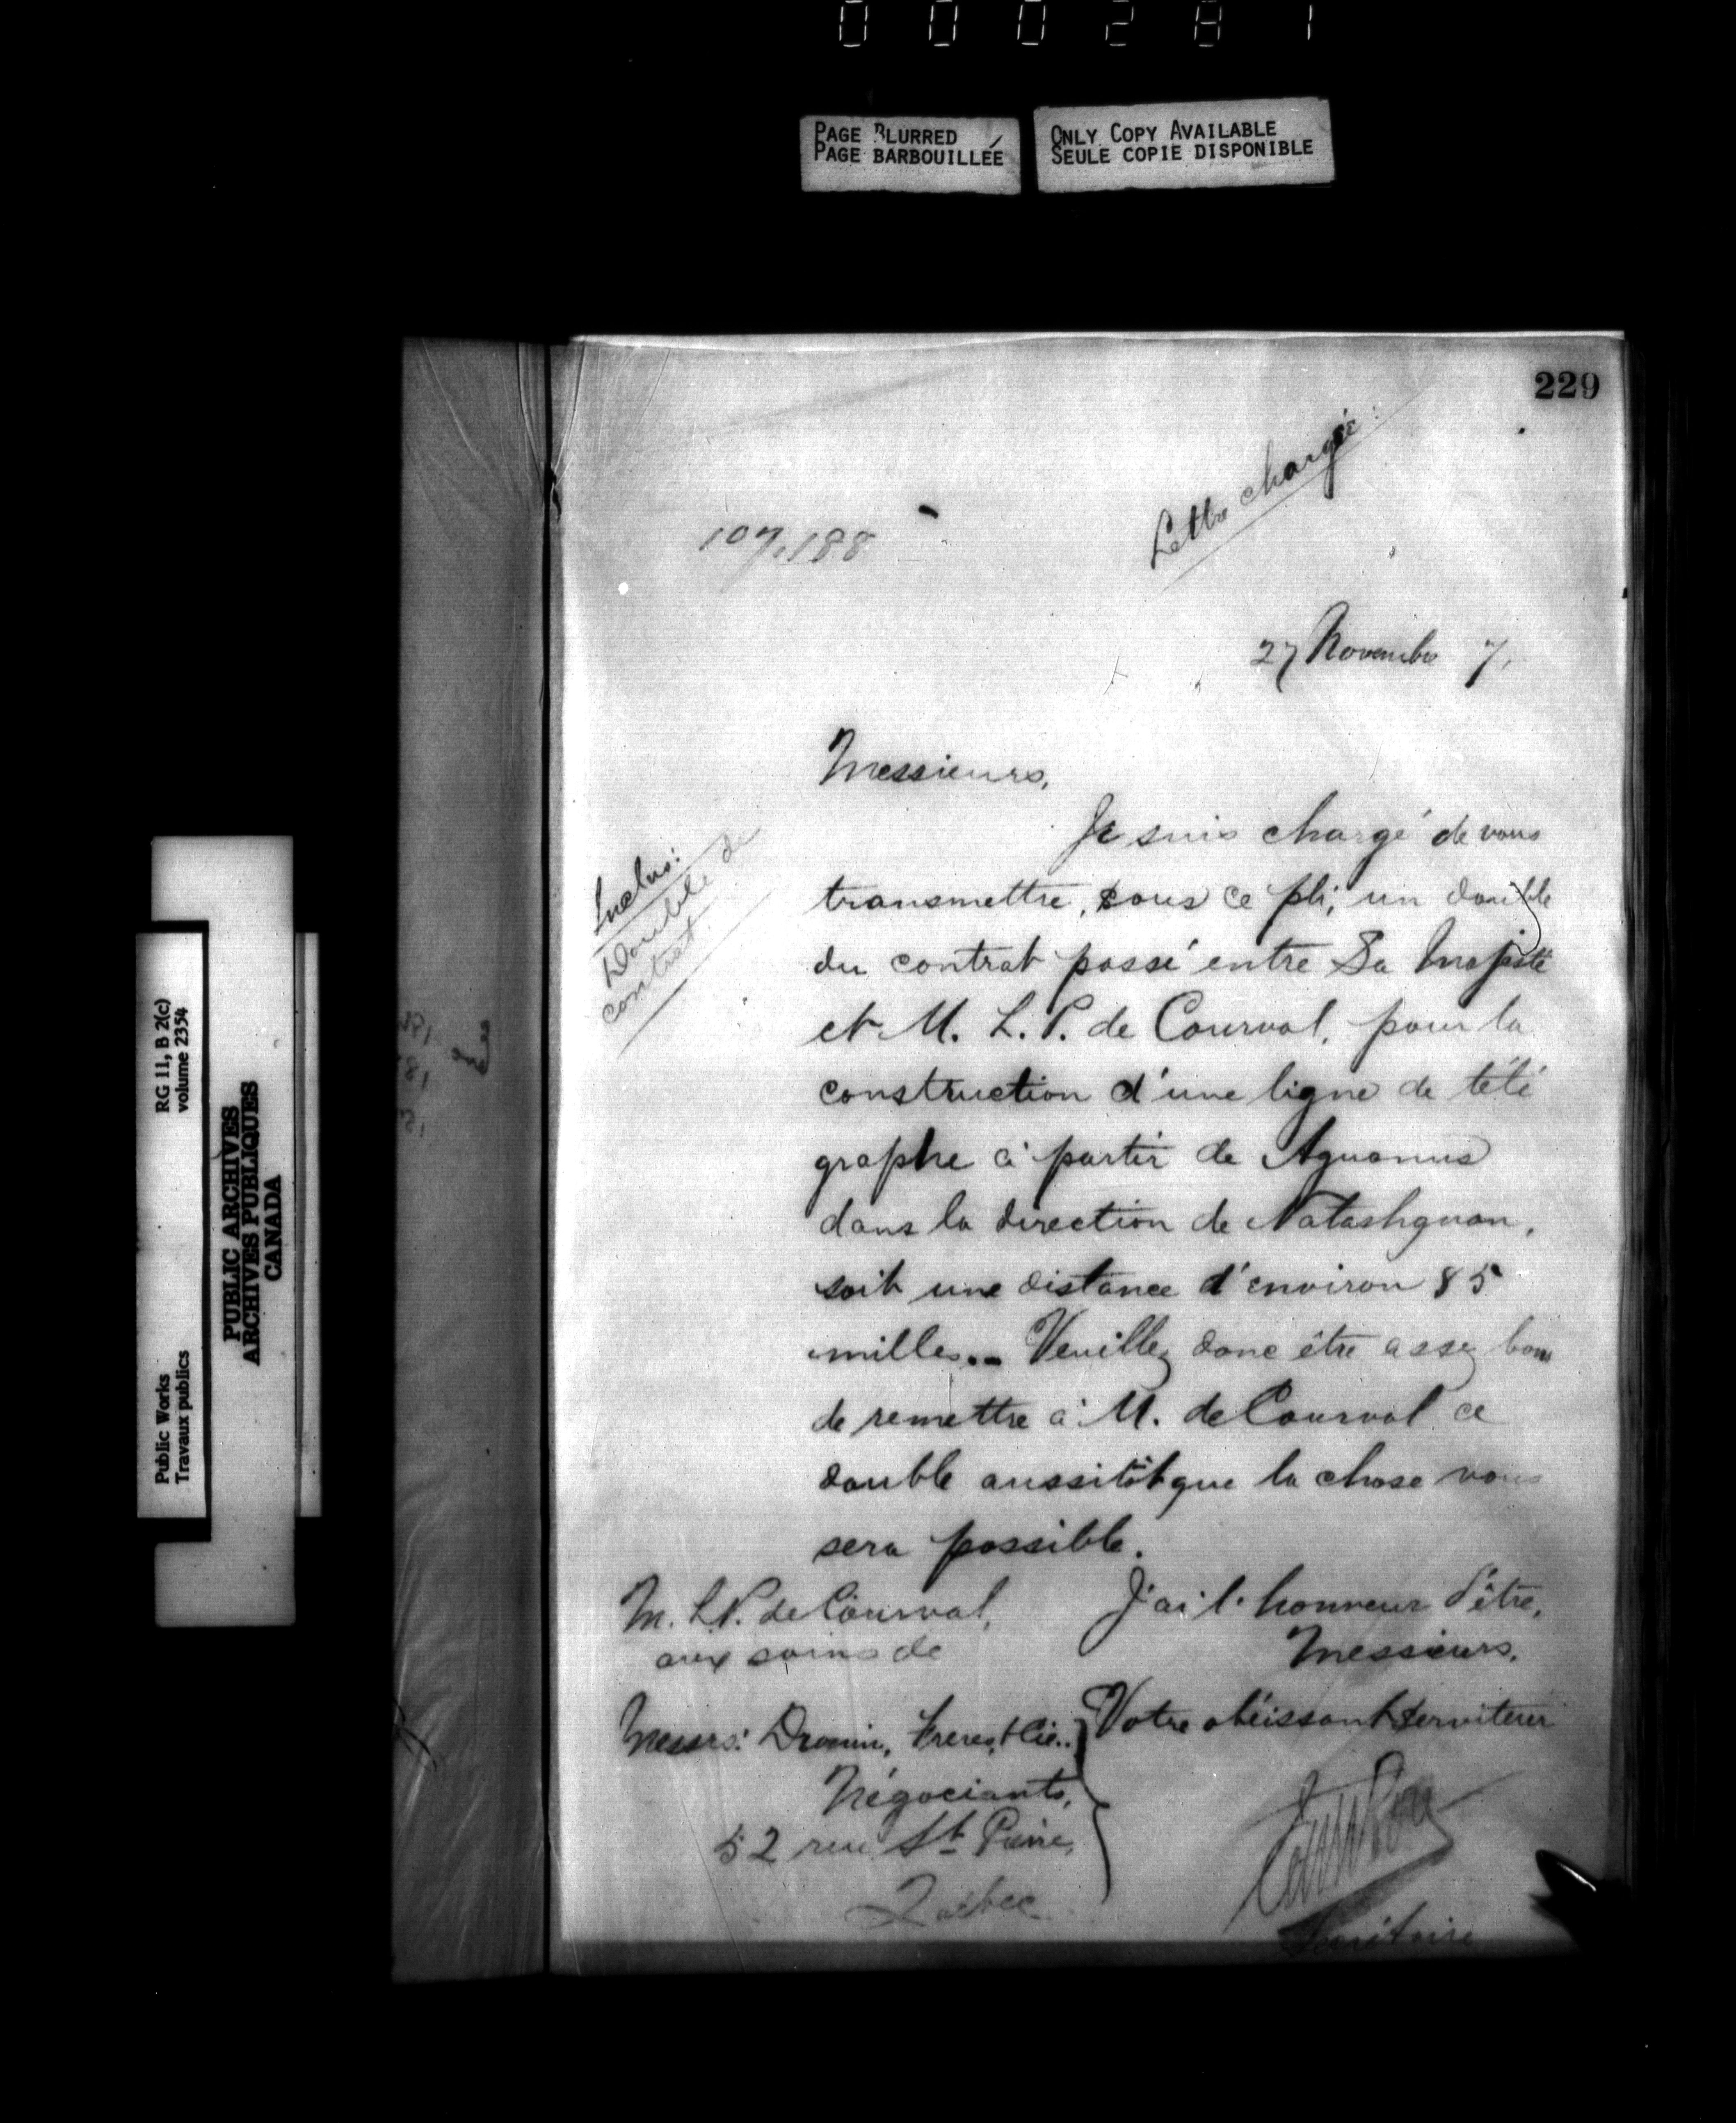 000281
PAGE BLURRED
PAGE BARBOUILLÉE
ONLY COPY AVAILABLE
SEULE COPIE DISPONIBLE
229
Lettre chargée
107,188
27 Novembre 7,
Messieurs,
Je suis chargé de vous
transmettre, sous ce pli, un double
du contrat passé entre Sa Majesté
et M. L. P. de Courval, pour la
construction d'une ligne de télé
graphe à partir de Aguanus
dans la direction de Natashquan,
soit une distance d'environ 85
milles.. Veuillez donc être assez bons
de remettre à M. de Courval ce
double aussitôt que la chose vous
sera possible.
J'ai l'honneur d'être,
Messieurs,
Votre obéissant serviteur
Secrétaire
Inclus:
Double de
contrat
M. L.P. de Courval,
aux soins de
Messrs: Drouin, Freres, & Cie..
Négociants,
52 rue St Pierre,
Québec
RG 11, B 2(c)
volume 2354
Public Works
Travaux publics
PUBLIC ARCHIVES
ARCHIVES PUBLIQUES
CANADA